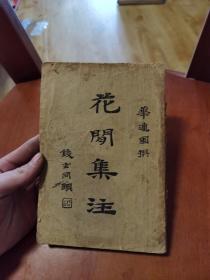 華連圃撰
花閒集注
錢玄同題